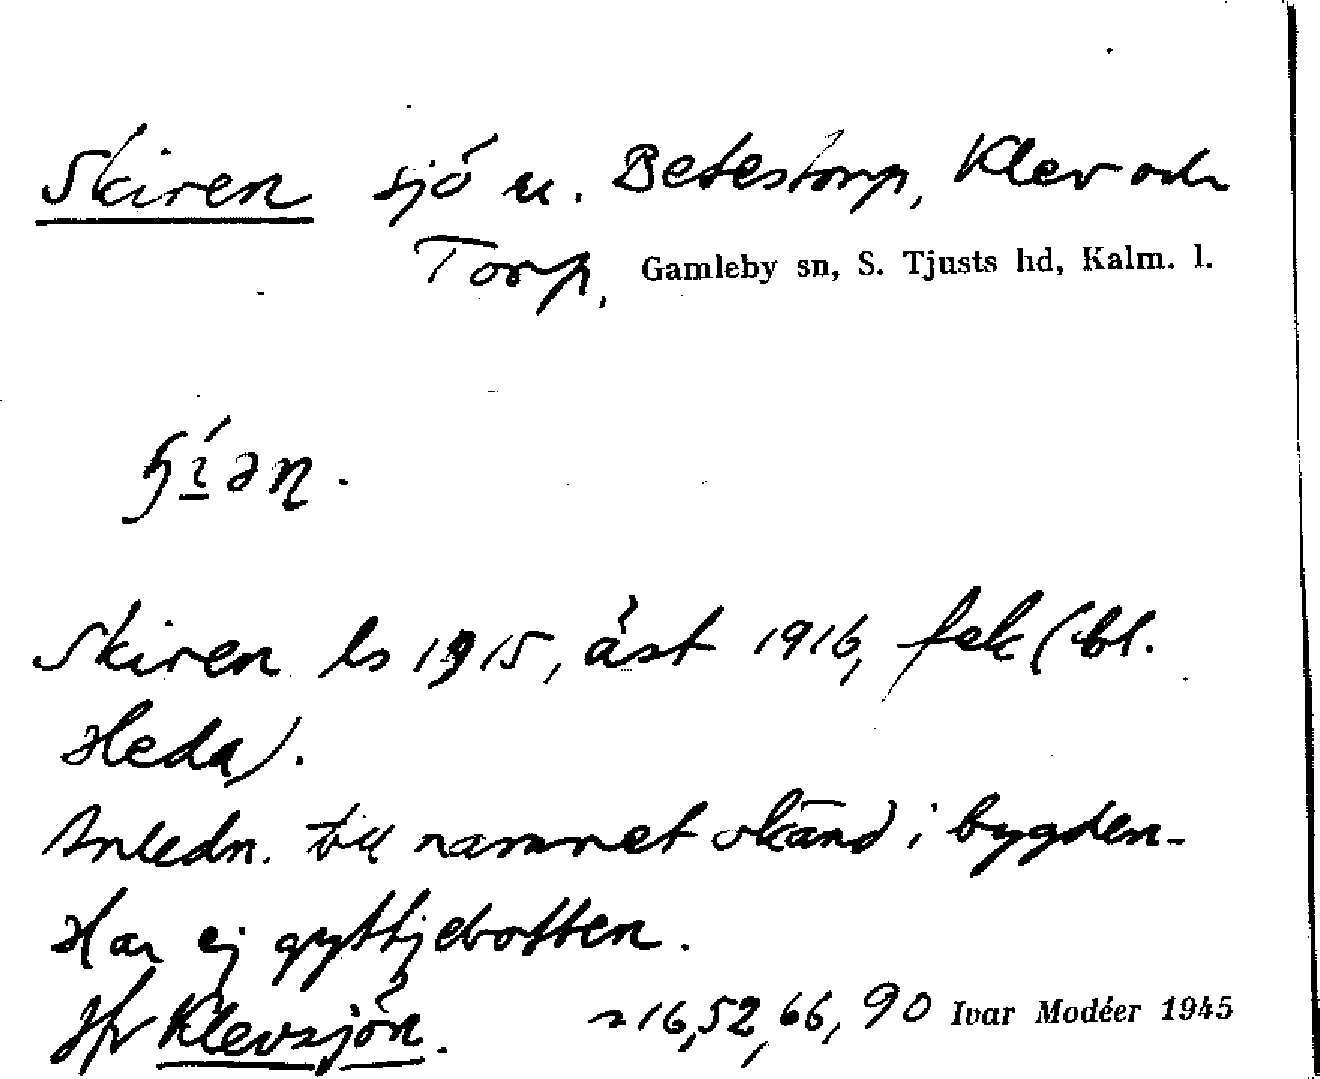 Skiren sjö u. Betestorp, Klev och
Torp, Gamleby sn, S. Tjusts hd, Kalm. l.
ɧíən.
Skiren ls 1915, äst 1916, fek (bl.
Heda).
Anledn. till namnet okänd i bygden.
Har ej gyttjebotten.
Jfr Klevsjön. 16, 52, 66, 90 Ivar Modéer 1945